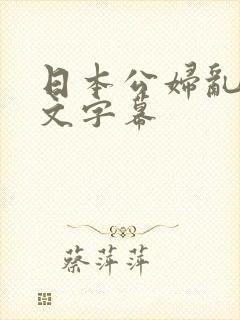 日本公婦亂
文字幕
蔡萍萍